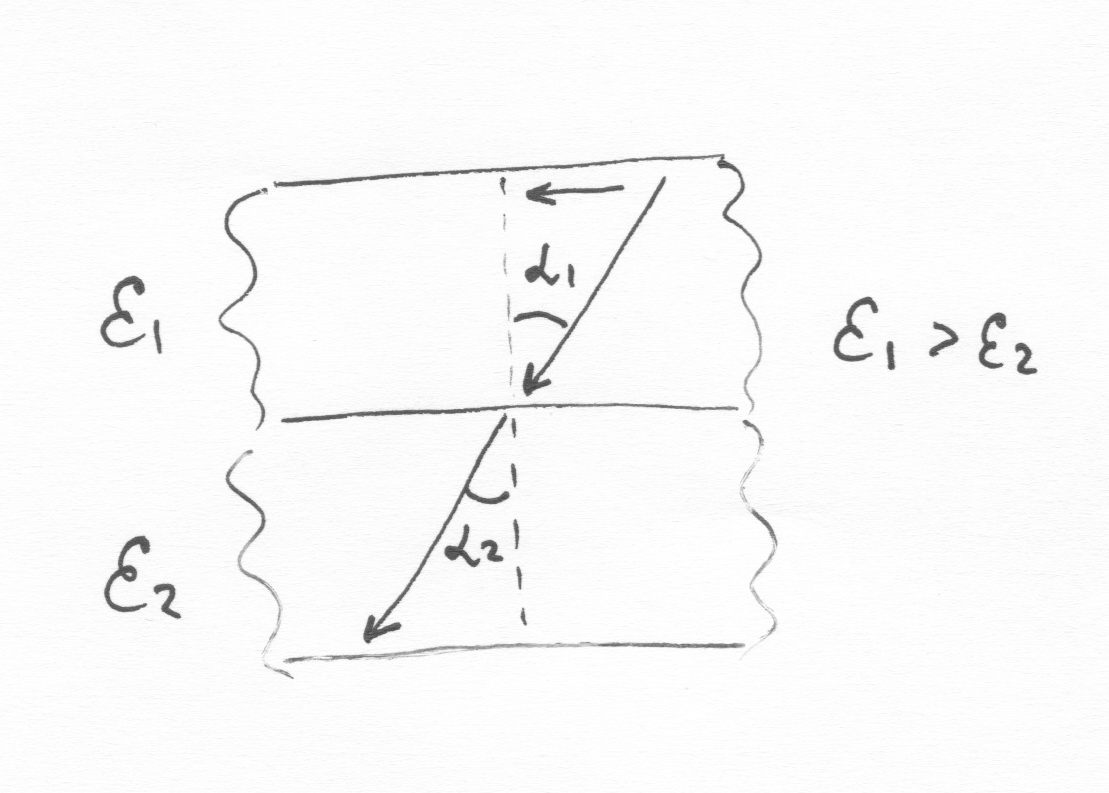 α1
ε1
ε1 > ε2
α2
ε2